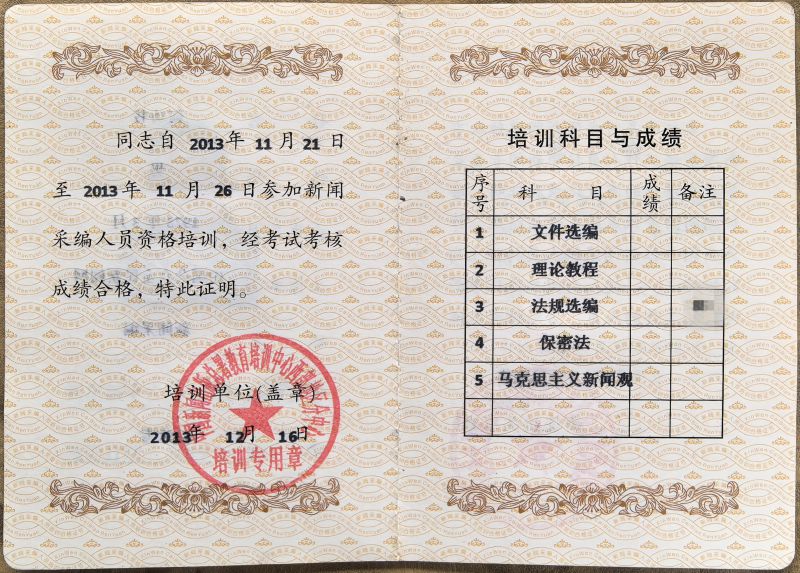 同志自 2013年 11月21日
至 2013年 11月26日参加新闻
采编人员资格培训，经考试考核
成绩合格，特此证明。
培训单位(盖章)
2013年 12月 16日
教育培训中心
培训专用章
培训科目与成绩
序号 科 目 成绩 备注
1 文件选编
2 理论教程
3 法规选编
4 保密法
5 马克思主义新闻观